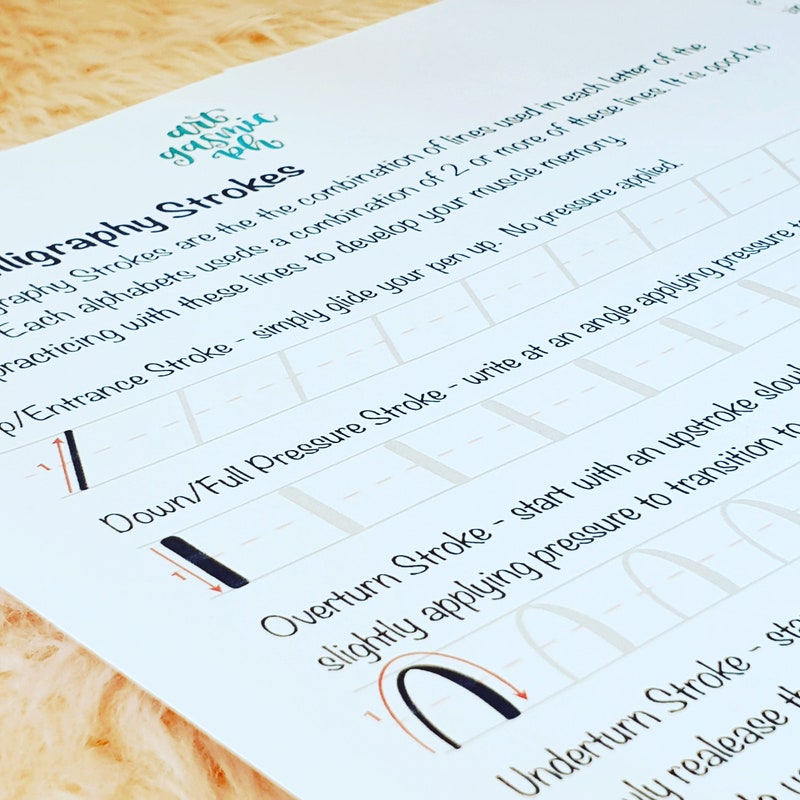 art
gasmic
ph
Strokes
Strokes are the the combination of lines used in each letter of the
Each alphabets useds a combination of 2 or more of these lines. It is good to
practicing with these lines to develop your muscle memory.
/Entrance Stroke - simply glide your pen up. No pressure applied.
1
Down/Full Pressure Stroke - write at an angle applying pressure
1
Overturn Stroke - start with an upstroke
slightly applying pressure to transition to
1
Underturn Stroke -
realease